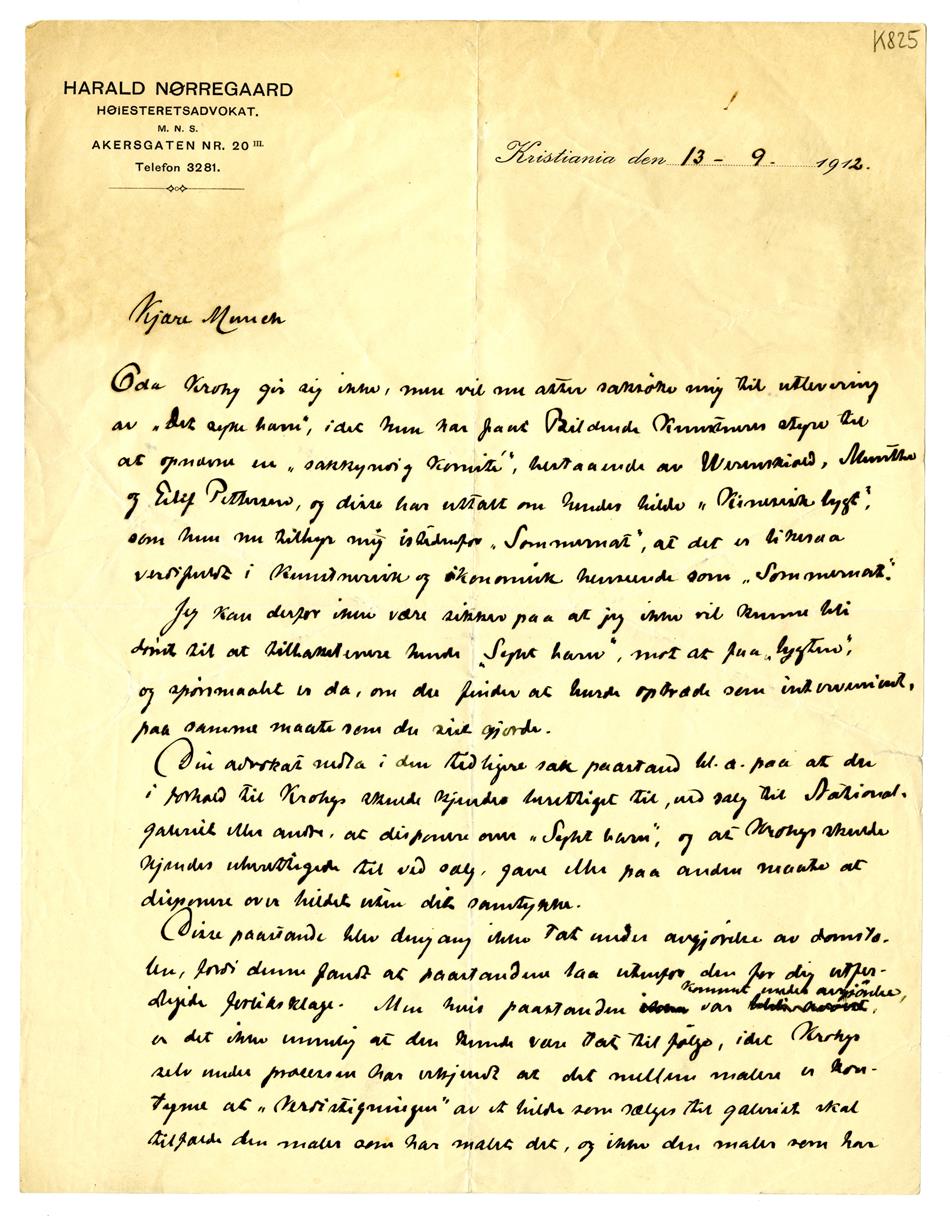 K825
HARALD NØRREGAARD
HØIESTERETSADVOKAT.
M. N. S.
AKERSGATEN NR. 20 III.
Telefon 3281.
Kristiania den 13 - 9. 1912.
Kjære Munch
Oda Krohg gir sig ikke, men vil nu atter saksøke mig til utlevering
av „Det syke barn", idet hun har faat Bildende Kunstneres styre til
at opnævne en „sakkyndig komité", bestaaende av Werenskiold, Munthe
og Eilif Pettersen, og disse har uttalt om hendes bilde „Kinesisk lygt",
som hun nu tilbyr mig istedenfor „Sommernat", at det er likesaa
verdifuldt i kunstnerisk og økonomisk henseende som „Sommernat".
Jeg kan derfor ikke være sikker paa at jeg ikke vil kunne bli
dømt til at tilbakelevere hende „Sykt barn", mot at faa „lygten",
og spørsmaalet er da, om du finder at burde optræde som intervenient,
paa samme maate som du sidst gjorde.
Din advokat nedla i den tidligere sak paastand bl. a. paa at du
i forhold til Krohgs skulde kjendes berettiget til, ved salg til National-
galeriet eller andre, at disponere over „Sykt barn", og at Krohgs skulde
kjendes uberettigede til ved salg, gave eller paa anden maate at
disponere over bildet uten dit samtykke.
Disse paastande blev dengang ikke tat under avgjørelse av domsto-
len, fordi denne fandt at paastandene laa utenfor den for dig utfer-
digede forliksklage. Men hvis paastanden var kommet under avgjørelse,
er det ikke umulig at den kunde være tat til følge, idet Krohgs
selv under processen har erkjendt at det mellem malere er kon-
tyme at „Verdistigningen" av et bilde som sælges til galeriet skal
tilfalde den maler som har malet det, og ikke den maler som har